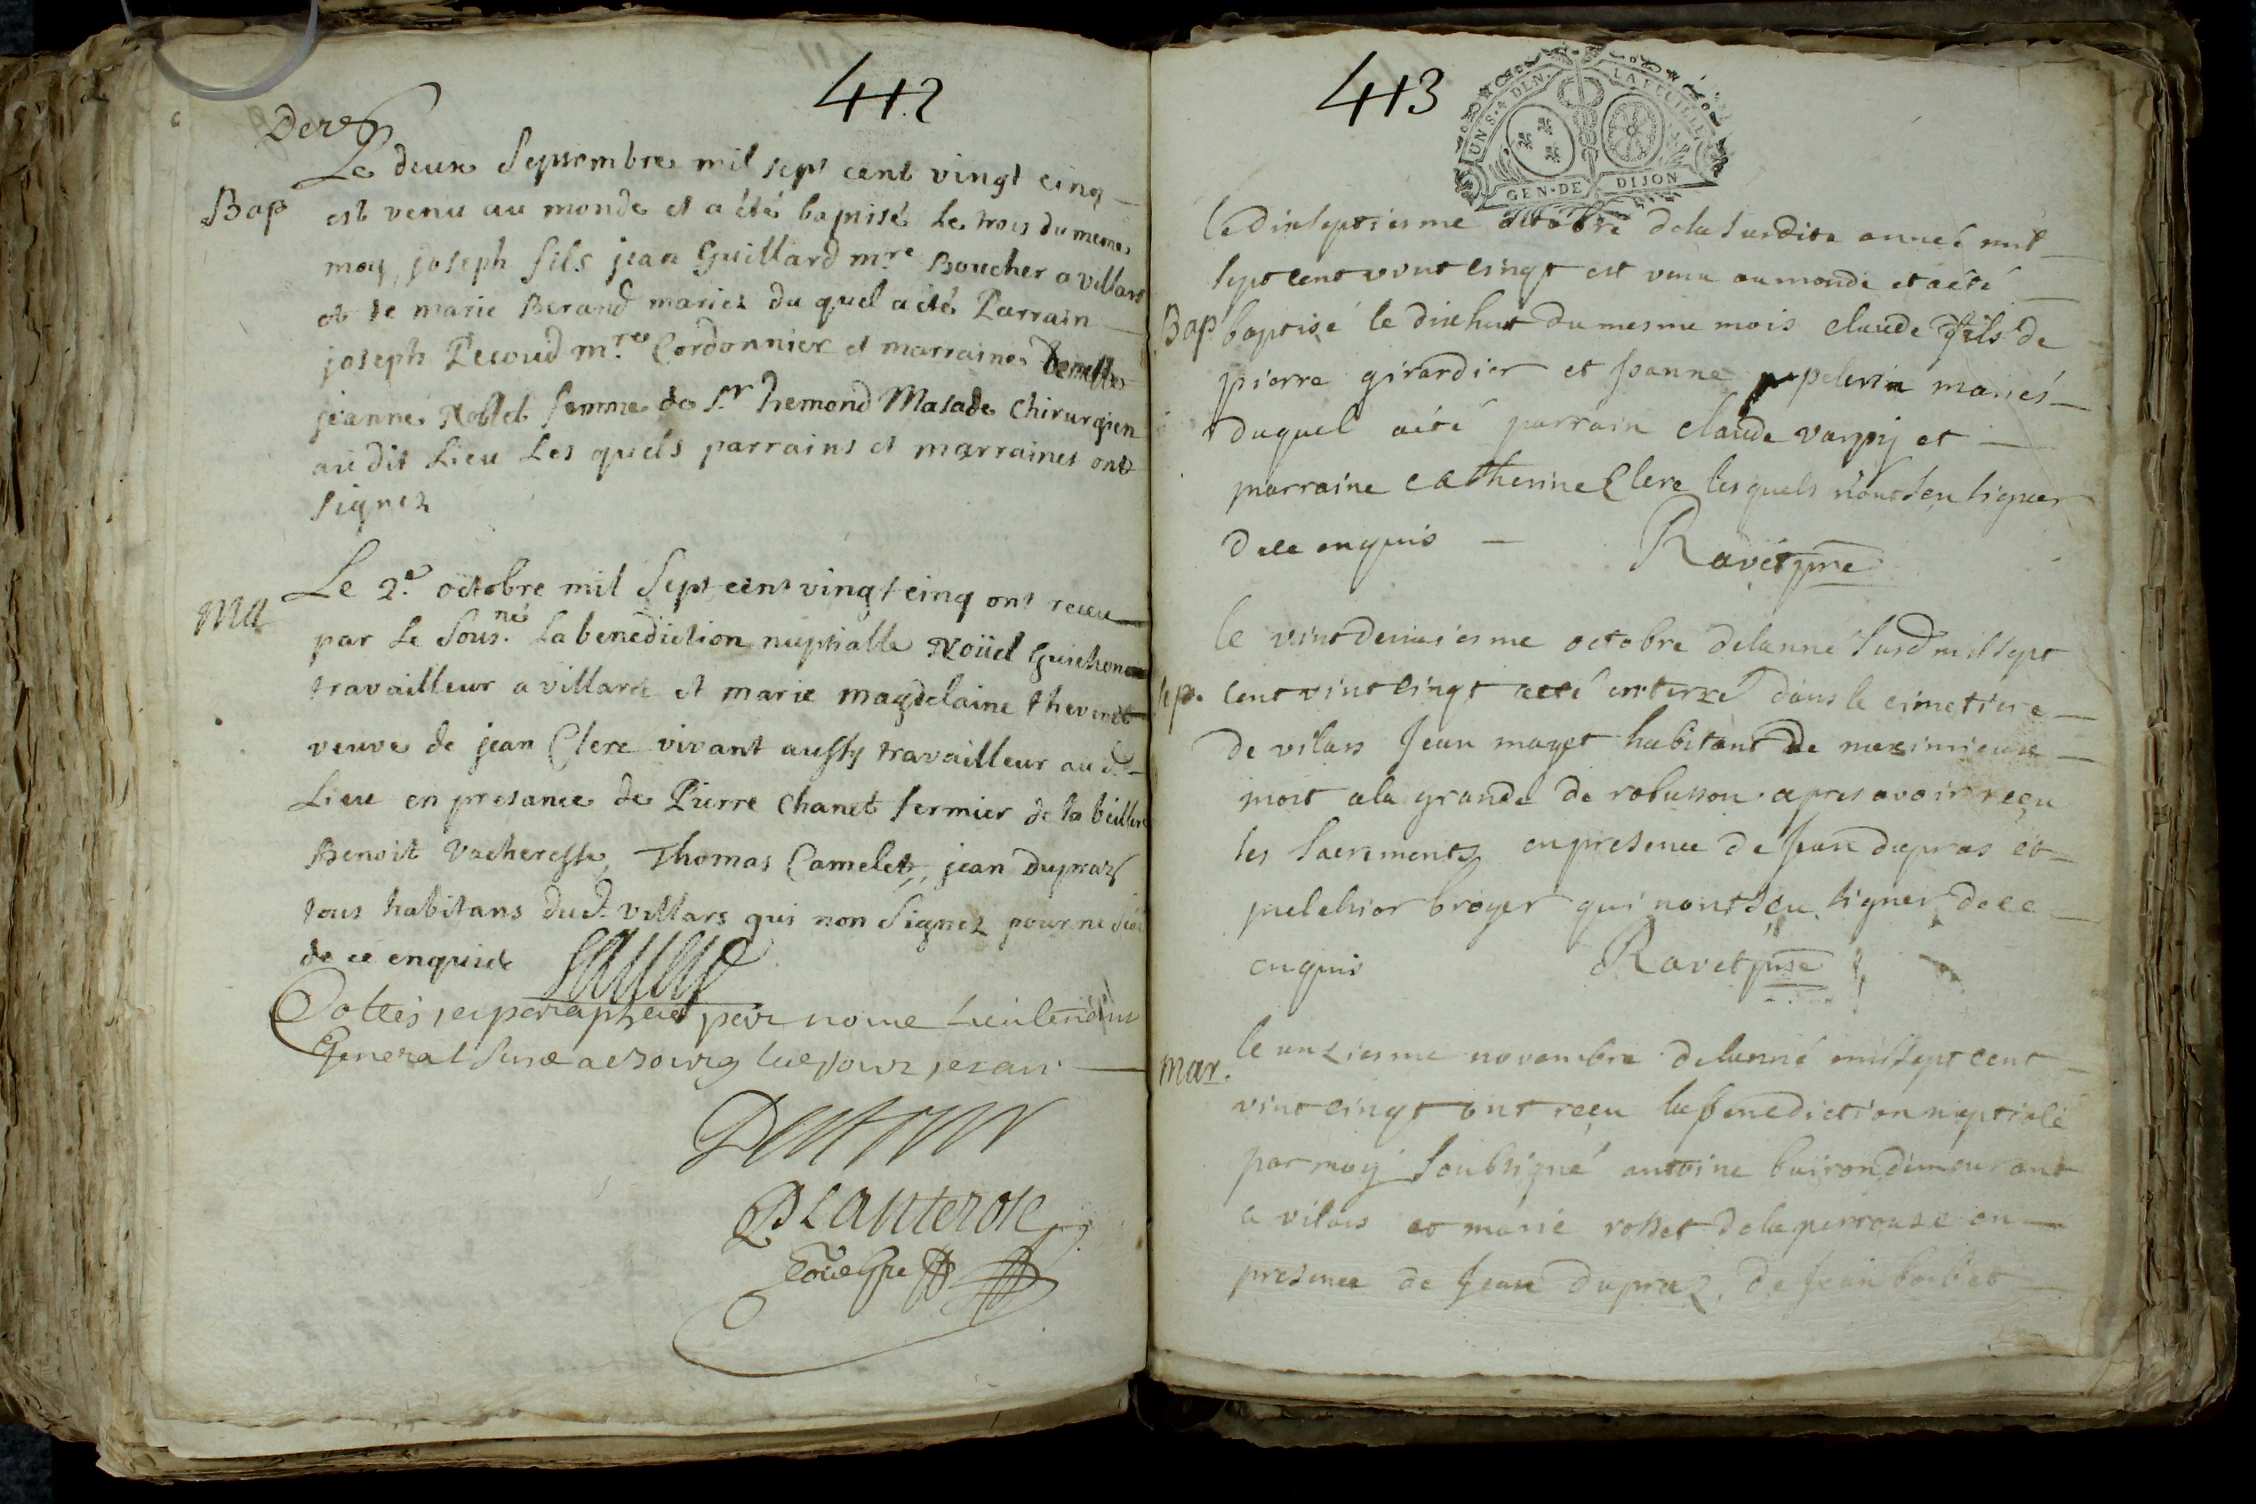 412
Der
Le deux Septembre mil sept cent vingt cinq
Bap est venu au monde et a été baptisé Le trois du meme
moy, joseph fils jean Guillard mre Boucher a villars
et de marie Berand mariez du quel a été Parrain
joseph Pecoud mre Cordonnier et marraine
jeanne Noblet femme de Sr hemond Malade Chirurgien
au dit Lieu Les quels parrains et marraines ont
signez
Le 2e octobre mil Sept cent vingt cinq ont receu
Ma par Le Sousné La benediction nuptialle Noüel Guichon
travailleur a villard et marie magdelaine thevenet
veuve de jean Clerc vivant aussy travailleur au d.
Lieu en presance de Pierre Chanet fermier de la
Benoit Vacheresse, Thomas Camelet, jean Dupraz
tous habitans dud. villars qui non Signez pour ne
de ce enquis
Cottés, et paraphée par nous Lieutenant
General a Bourg
Planterose
413
UN S. 4 DEN. LA FEUILLE
GEN. DE DIJON
le dixseptiesme octobre de la susdite anneé mil
sept cent vint cingt est venu au monde et a été
Bap baptisé le dixhuit du mesme mois claude fils de
pierre girardier et Jeanne pelerin mariés
duquel a été parrain claude varpy et
marraine catherine Clerc lesquels n'ont seu signer
de ce enquis Ravet ptre
le vint deuxiesme octobre de lanné susd mil sept
sep. cent vint cingt a eté enterré dans le cimetiere
de vilars Jean maget habitant de meximieux
mort a la grande de robusson apres avoir reçu
les sacrements en presence de Jean dupras et
melchior broyer qui n'ont seu signer de ce
enquis Ravet ptre
le unziesme novembre de lanné mil sept cent
mar. vint cingt ont reçu la benediction nuptiale
par moy soubsigné antoine buiron demeurant
a vilars et marie rosset de la perrouse en
presence de Jean dupraz, de Jean